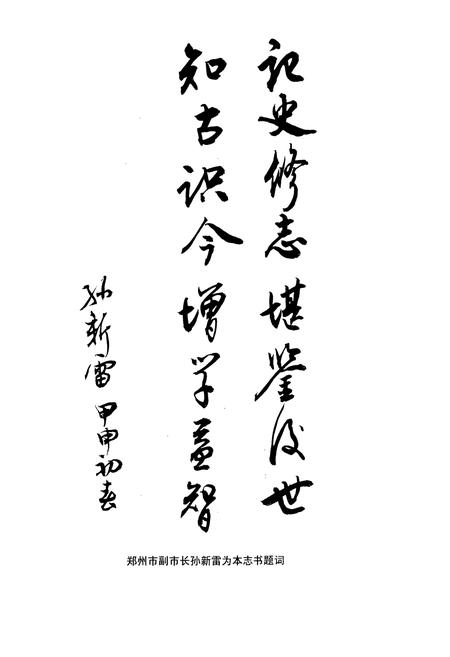 记史修志堪鉴后世
知古识今增学益智
孙新雷 甲申初春
郑州市副市长孙新雷为本志书题词